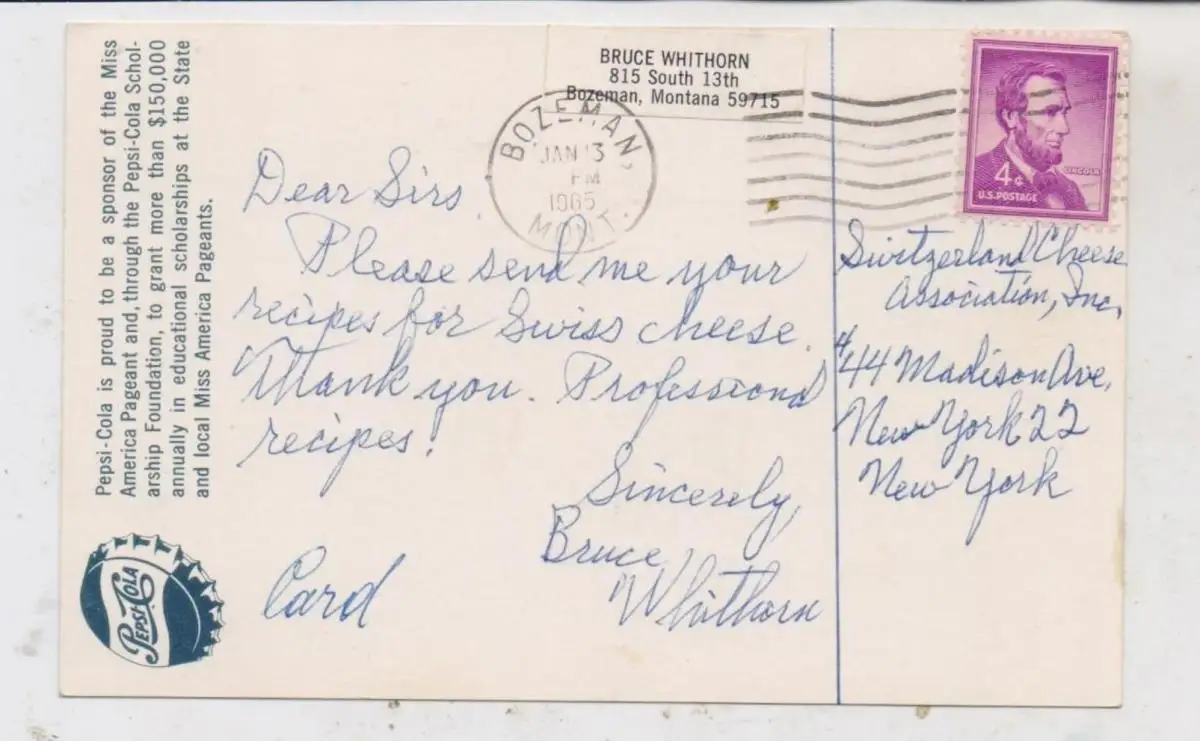 Pepsi-Cola is proud to be a sponsor of the Miss
America Pageant and, through the Pepsi-Cola Schol-
arship Foundation, to grant more than $150,000
annually in educational scholarships at the State
and local Miss America Pageants.
PEPSI-COLA
BRUCE WHITHORN
815 South 13th
Bozeman, Montana 59715
BOZEMAN,
JAN 13
PM
1965
MONT.
4¢
LINCOLN
U.S. POSTAGE
Dear Sirs,
Please send me your
recipes for Swiss cheese.
Thank you. Professional
recipes!
Sincerely,
Bruce
Whithorn
Card
Switzerland Cheese
Association, Inc,
444 Madison Ave.
New York 22
New York